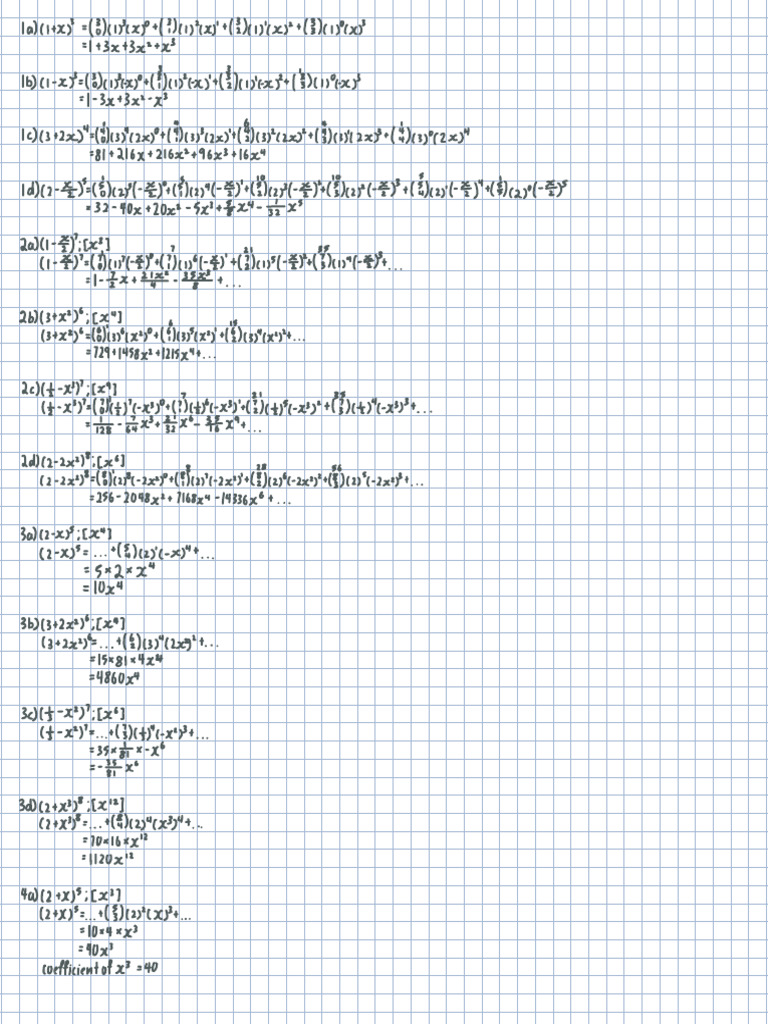 1a) (1+x)³ = (3 0)(1)³(x)⁰ + (3 1)(1)²(x)¹ + (3 2)(1)¹(x)² + (3 3)(1)⁰(x)³
= 1 + 3x + 3x² + x³
1b) (1-x)³ = (3 0)(1)³(-x)⁰ + (3 1)(1)²(-x)¹ + (3 2)(1)¹(-x)² + (3 3)(1)⁰(-x)³
= 1 - 3x + 3x² - x³
1c) (3+2x)⁴ = (4 0)(3)⁴(2x)⁰ + (4 1)(3)³(2x)¹ + (4 2)(3)²(2x)² + (4 3)(3)¹(2x)³ + (4 4)(3)⁰(2x)⁴
= 81 + 216x + 216x² + 96x³ + 16x⁴
1d) (2-x/2)⁵ = (5 0)(2)⁵(-x/2)⁰ + (5 1)(2)⁴(-x/2)¹ + (5 2)(2)³(-x/2)² + (5 3)(2)²(-x/2)³ + (5 4)(2)¹(-x/2)⁴ + (5 5)(2)⁰(-x/2)⁵
= 32 - 40x + 20x² - 5x³ + 5/8 x⁴ - 1/32 x⁵
2a) (1-x/2)⁷; [x³]
(1-x/2)⁷ = (7 0)(1)⁷(-x/2)⁰ + (7 1)(1)⁶(-x/2)¹ + (7 2)(1)⁵(-x/2)² + (7 3)(1)⁴(-x/2)³ + ...
= 1 - 7/2 x + 21x²/4 - 35x³/8 + ...
2b) (3+x²)⁶; [x⁴]
(3+x²)⁶ = (6 0)(3)⁶(x²)⁰ + (6 1)(3)⁵(x²)¹ + (6 2)(3)⁴(x²)² + ...
= 729 + 1458x² + 1215x⁴ + ...
2c) (1/2-x³)⁷; [x⁹]
(1/2-x³)⁷ = (7 0)(1/2)⁷(-x³)⁰ + (7 1)(1/2)⁶(-x³)¹ + (7 2)(1/2)⁵(-x³)² + (7 3)(1/2)⁴(-x³)³ + ...
= 1/128 - 7/64 x³ + 21/32 x⁶ - 35/16 x⁹ + ...
2d) (2-2x²)⁸; [x⁶]
(2-2x²)⁸ = (8 0)(2)⁸(-2x²)⁰ + (8 1)(2)⁷(-2x²)¹ + (8 2)(2)⁶(-2x²)² + (8 3)(2)⁵(-2x²)³ + ...
= 256 - 2048x² + 7168x⁴ - 14336x⁶ + ...
3a) (2-x)⁵; [x⁴]
(2-x)⁵ = ... + (5 4)(2)¹(-x)⁴ + ...
= 5 × 2 × x⁴
= 10x⁴
3b) (3+2x²)⁶; [x⁴]
(3+2x²)⁶ = ... + (6 2)(3)⁴(2x²)² + ...
= 15 × 81 × 4x⁴
= 4860x⁴
3c) (1/3-x²)⁷; [x⁶]
(1/3-x²)⁷ = ... + (7 3)(1/3)⁴(-x²)³ + ...
= 35 × 1/81 × -x⁶
= -35/81 x⁶
3d) (2+x³)⁸; [x¹²]
(2+x³)⁸ = ... + (8 4)(2)⁴(x³)⁴ + ...
= 70 × 16 × x¹²
= 1120x¹²
4a) (2+x)⁵; [x³]
(2+x)⁵ = ... + (5 3)(2)²(x)³ + ...
= 10 × 4 × x³
= 40x³
coefficient of x³ = 40